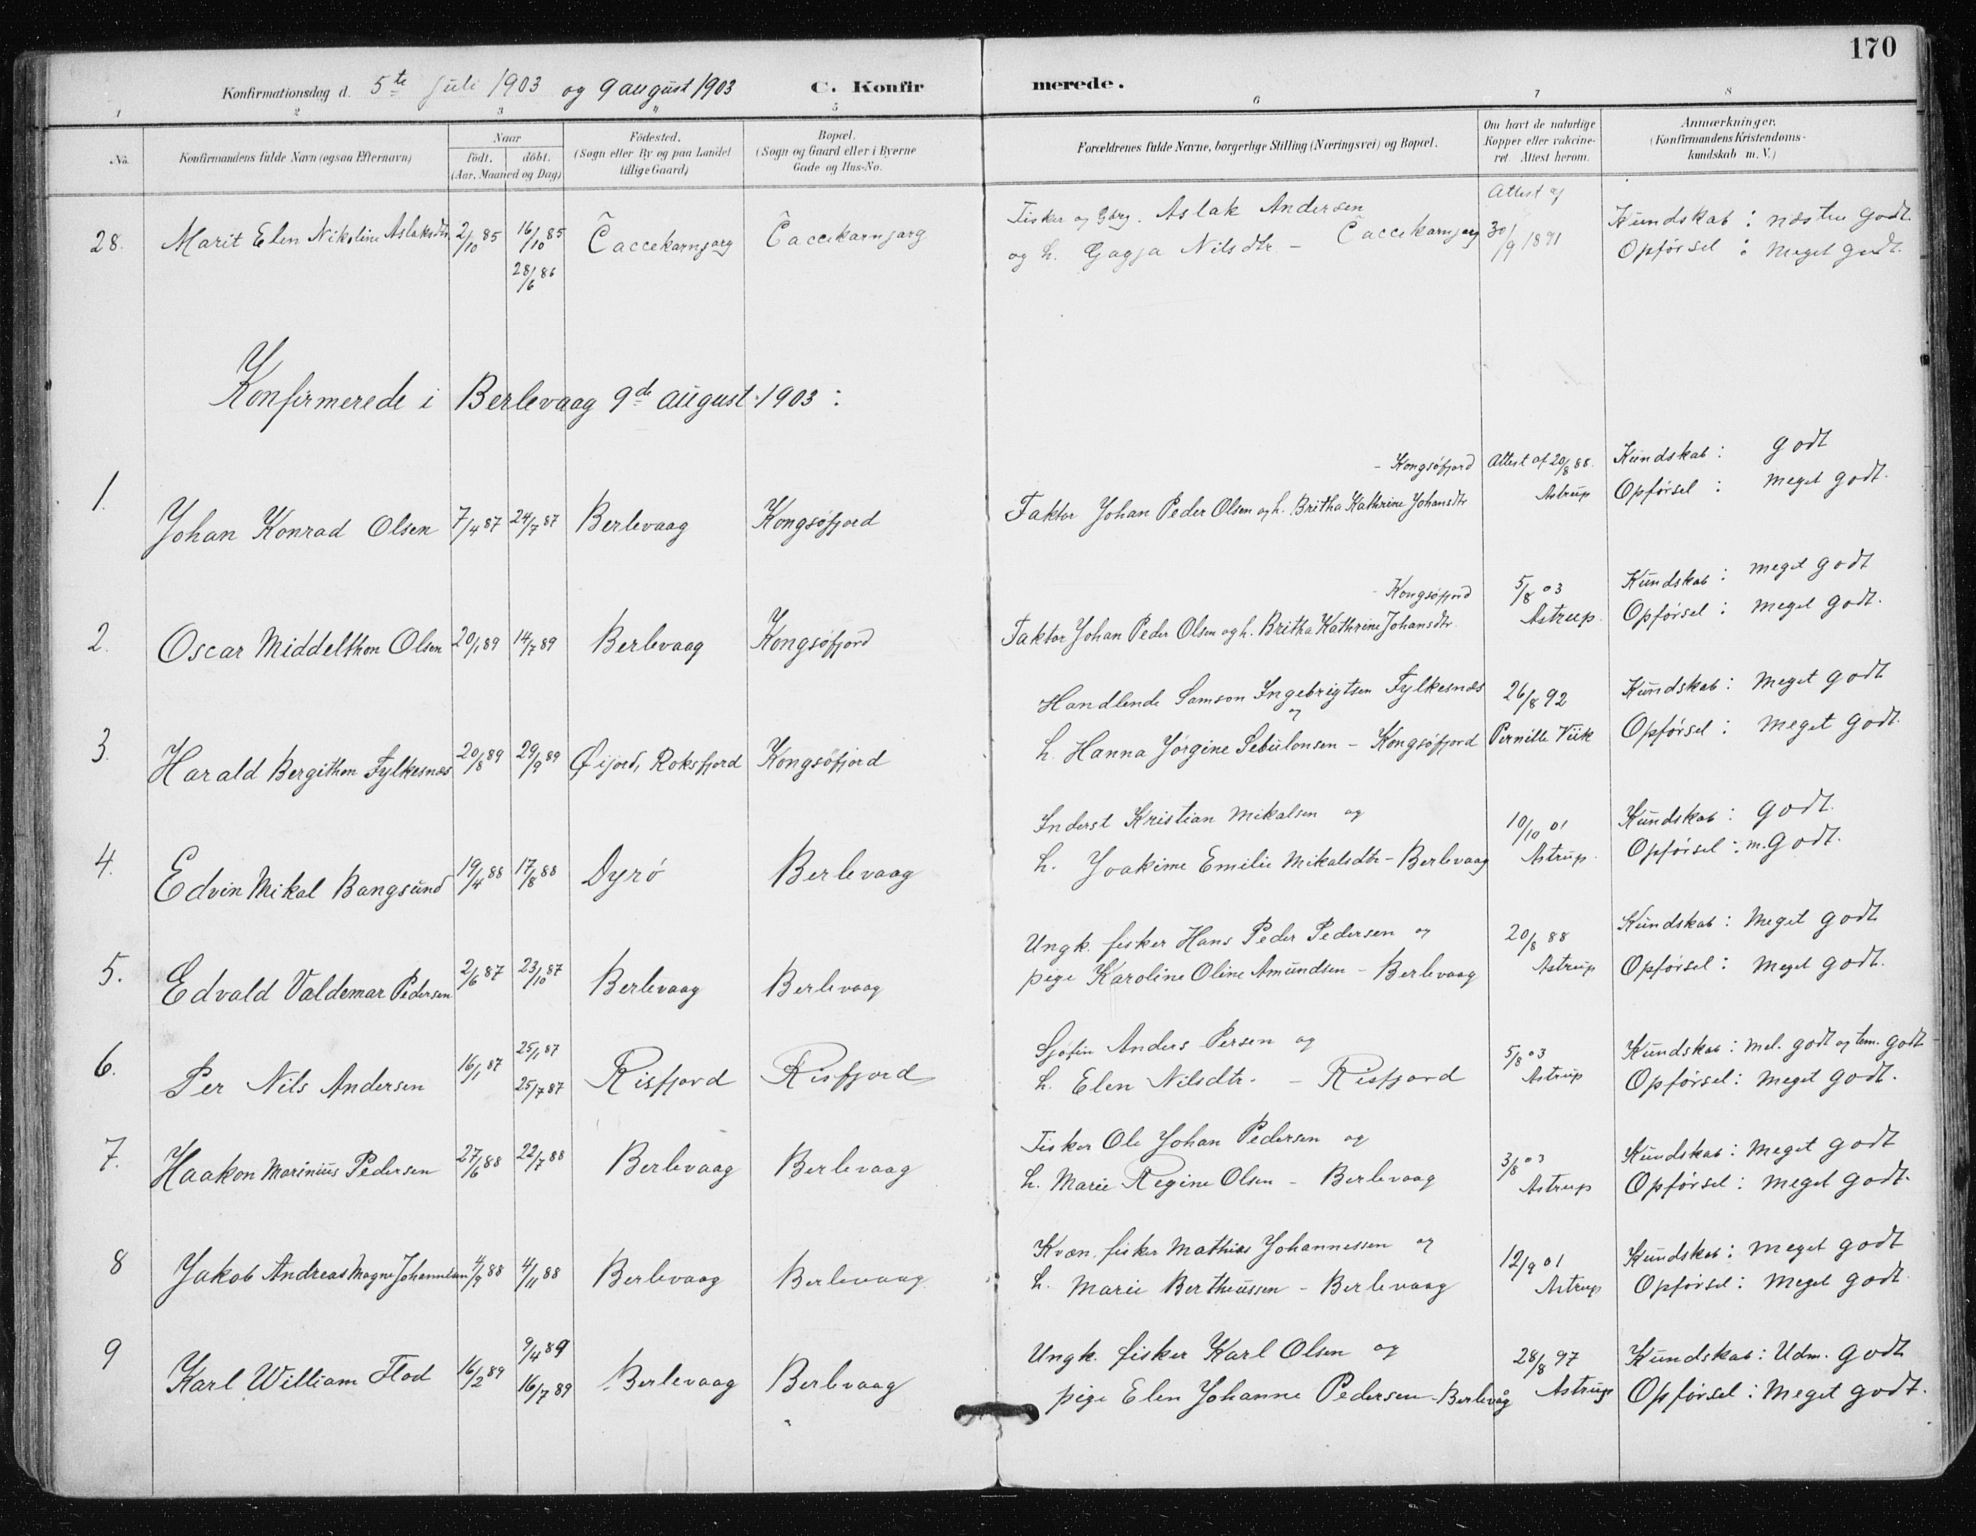 170
Konfirmationsdag d. 5te Juli 1903 og 9 august 1903 C. Konfirmerede.
1 2 3 4 5 6 7 8
No. Konfirmandens fulde Navn (ogsaa Efternavn) Naar født. døbt. (Aar, Maaned og Dag) Fødested. (Sogn eller By og paa Landet tillige Gaard) Bopæl. (Sogn og Gaard eller i Byerne Gade og Hus-No. Forældrenes fulde Navne, borgerlige Stilling (Næringsvei) og Bopæl. Om havt de naturlige Kopper eller vakcineret. Attest herom. Anmærkninger. (Konfirmandens Kristendomskundskab m. V.)
28. Marit Elen Nikoline Aslaksdtr. 2/10 85 16/10 85 28/6 86 Čaccekarnjarg Čaccekarnjarg
Fisker og Gbrg. Aslak Andersen
og h. Gagja Nilsdtr. – Čaccekarnjarg
Attest af 30/9 1891
Kundskab : næsten godt.
Opførsel : Meget godt.
Konfirmerede i Berlevaag 9de august 1903 :
1. Johan Konrad Olsen 7/4 87 24/7 87 Berlevaag Kongsøfjord
– Kongsøfjord
Faktor Johan Peder Olsen og h. Britha Kathrine Johansdtr
Attest af 20/8 88.
Astrup
Kundskab : godt
Opførsel : meget godt.
2. Oscar Middelthon Olsen 20/1 89 14/7 89 Berlevaag Kongsøfjord
– Kongsøfjord
Faktor Johan Peder Olsen og h. Britha Kathrine Johansdtr.
5/8 03
Astrup.
Kundskab : meget godt
Opførsel : meget godt.
3. Harald Bergithon Fylkesnæs 20/8 89 29/9 89 Øijord, Roksfjord Kongsøfjord
Handlende Samson Ingebrigtsen Fylkesnæs
og
h. Hanna Jørgine Sebulonsen – Kongsøfjord
26/8 92
Pernille Viik
Kundskab : Meget godt
Opførsel : Meget godt.
4. Edvin Mikal Bangsund 19/4 88 17/8 88 Dyrø Berlevaag
Inderst Kristian Mikalsen og
h. Joakime Emilie Mikalsdtr – Berlevaag
10/10 01
Astrup.
Kundskab : godt.
Opførsel : m. godt.
5. Edvald Valdemar Pedersen 2/6 87 23/10 87 Berlevaag Berlevaag
Ungk. fisker Hans Peder Pedersen og
pige Karoline Oline Amundsen – Berlevaag
20/8 88
Astrup
Kundskab : Meget godt
Opførsel : Meget godt.
6. Per Nils Andersen 16/1 87 25/1 87 25/7 87 Risfjord Risfjord
Sjøfin Anders Persen og
h. Elen Nilsdtr. – Risfjord
5/8 03
Astrup
Kundskab : Mel. godt og tem. godt
Opførsel : Meget godt.
7. Haakon Marinius Pedersen 27/6 88 22/7 88 Berlevaag Berlevaag
Fisker Ole Johan Pedersen og
h. Marie Regine Olsen – Berlevaag
3/8 03
Astrup
Kundskab : Meget godt
Opførsel : Meget godt.
8 Jakob Andreas Magne Johannsen 4/9 88 4/11 88 Berlevaag Berlevaag
Kvæn. fisker Mathias Johannessen og
h. Marie Bertheussen – Berlevaag
12/9 01
Astrup
Kundskab : Meget godt
Opførsel : Meget godt.
9 Karl William Flod 16/2 89 9/4 89 16/7 89 Berlevaag Berlevaag
Ungk. fisker Karl Olsen og
pige Elen Johanne Pedersen – Berlevåg
28/8 97
Astrup
Kundskab : Udm. godt
Opførsel : Meget godt.